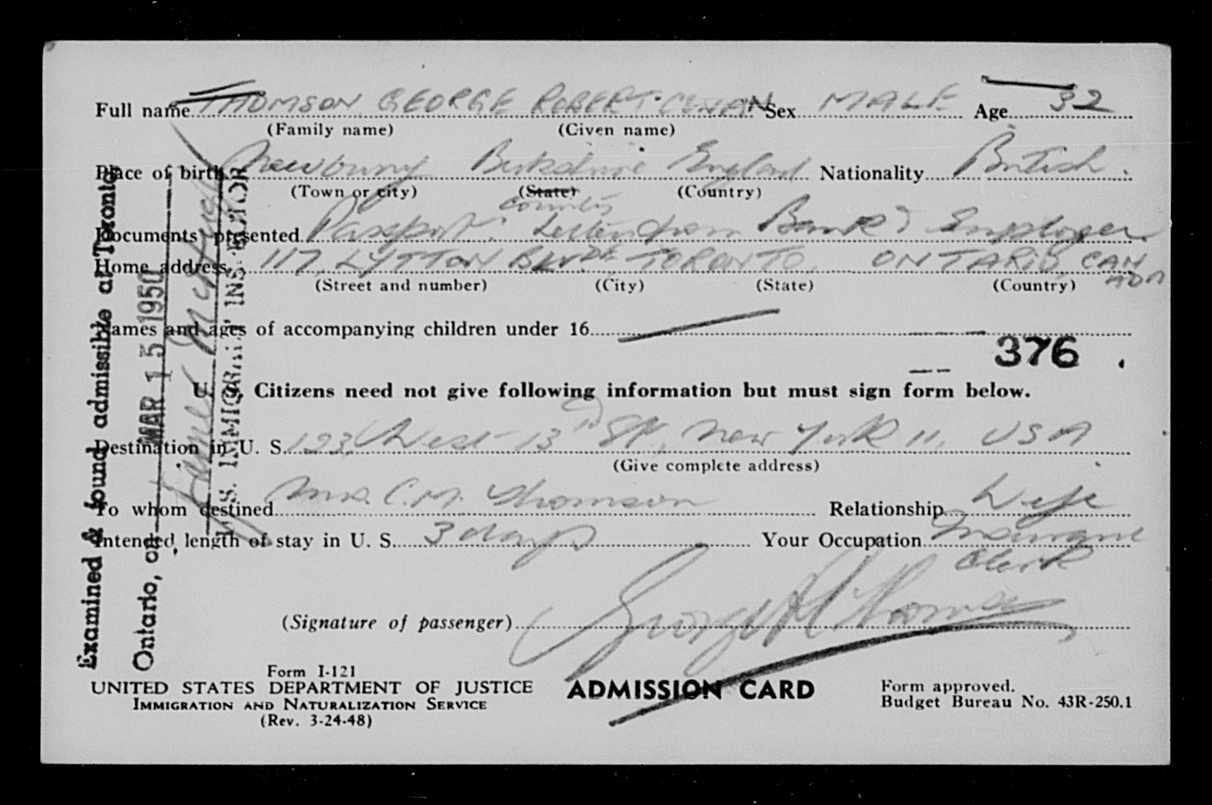 Full name THOMSON GEORGE ROBERT Sex MALE Age 32
(Family name) (Given name)
Place of birth Newbury Berkshire England Nationality British.
(Town or city) (State) (Country)
County
Documents presented Passport. Letter from Bank & Employer
Home address 117, LYTTON BLVD TORONTO, ONTARIO, CANADA
(Street and number) (City) (State) (Country)
Names and ages of accompanying children under 16
376
Citizens need not give following information but must sign form below.
Destination in U. S. 123, West 13th St, New York 11, USA
(Give complete address)
To whom destined Mrs. C.M. Thomson Relationship Wife
Intended length of stay in U. S. 3 days Your Occupation Insurance
Clerk
(Signature of passenger) George R Thomson
Form I-121
UNITED STATES DEPARTMENT OF JUSTICE ADMISSION CARD Form approved.
IMMIGRATION AND NATURALIZATION SERVICE Budget Bureau No. 43R-250.1
(Rev. 3-24-48)
Examined & found admissible at Toronto
Ontario, on MAR 15 1950
U.S. IMMIGRANT INSPECTOR